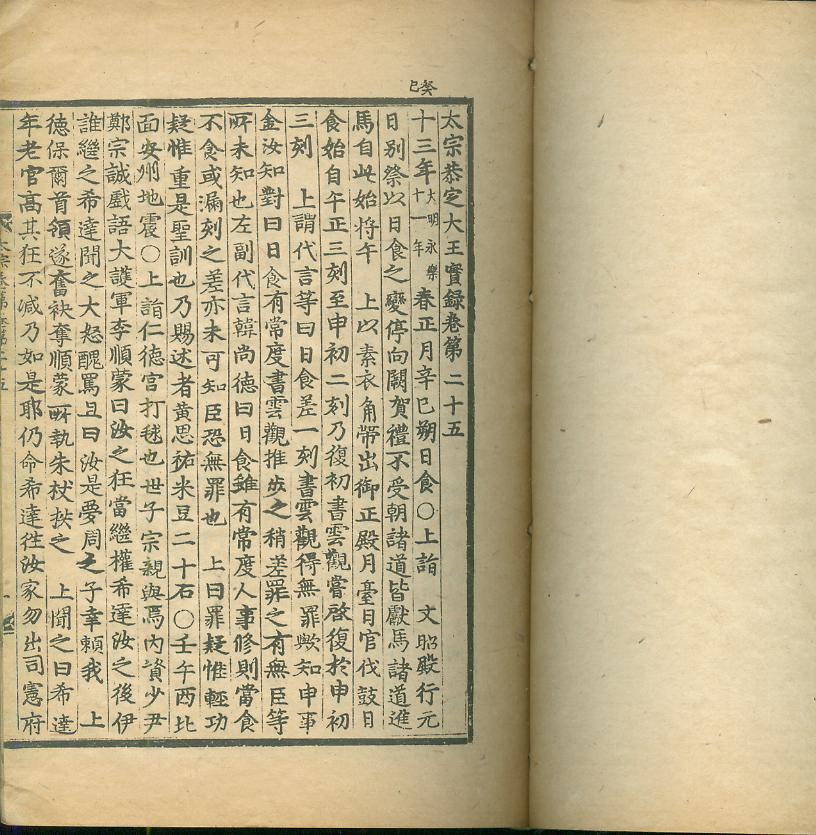 癸巳
太宗恭定大王實錄卷第二十五
十三年大明永樂十一年春正月辛巳朔日食〇上詣 文昭殿行元
日別祭以日食之變停向闕賀禮不受朝諸道皆獻馬諸道進
馬自此始將午 上以素衣角帶出御正殿月臺日官伐鼓日
食始自午正三刻至申初二刻乃復初書雲觀嘗啓復於申初
三刻 上謂代言等曰日食差一刻書雲觀得無罪歟知申事
金汝知對曰日食有常度書雲觀推步之稍差罪之有無臣等
所未知也左副代言韓尚德曰日食雖有常度人事修則當食
不食或漏刻之差亦未可知臣恐無罪也 上曰罪疑惟輕功
疑惟重是聖訓也乃賜述者黃思祐米豆二十石〇壬午西北
面安州地震〇上詣仁德宮打毬也世子宗親與焉內資少尹
鄭宗誠戲語大護軍李順蒙曰汝之狂當繼權希達汝之後伊
誰繼之希達聞之大怒醜罵且曰汝是夢周之子幸賴我 上
德保爾首領遂奮袂奪順蒙所執朱杖抶之 上聞之曰希達
年老官高其狂不減乃如是耶仍命希達往汝家勿出司憲府